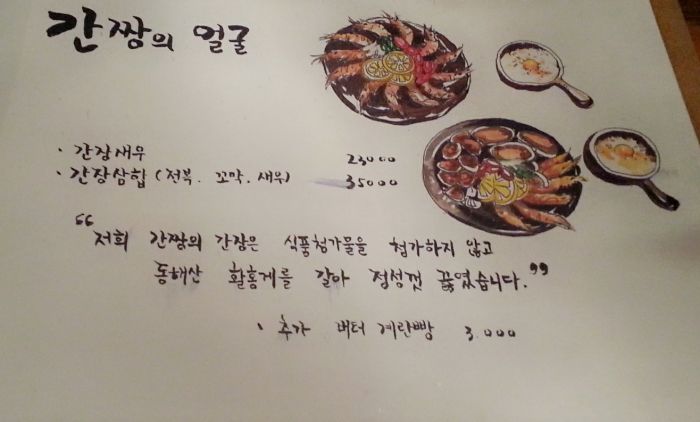 간짱의 얼굴
· 간장새우 23000
· 간장삼합 (전복. 꼬막. 새우) 35000
“ 저희 간짱의 간장은 식품첨가물을 첨가하지 않고
동해산 활홍게를 갈아 정성껏 끓였습니다.”
· 추가 버터 계란빵 3.000